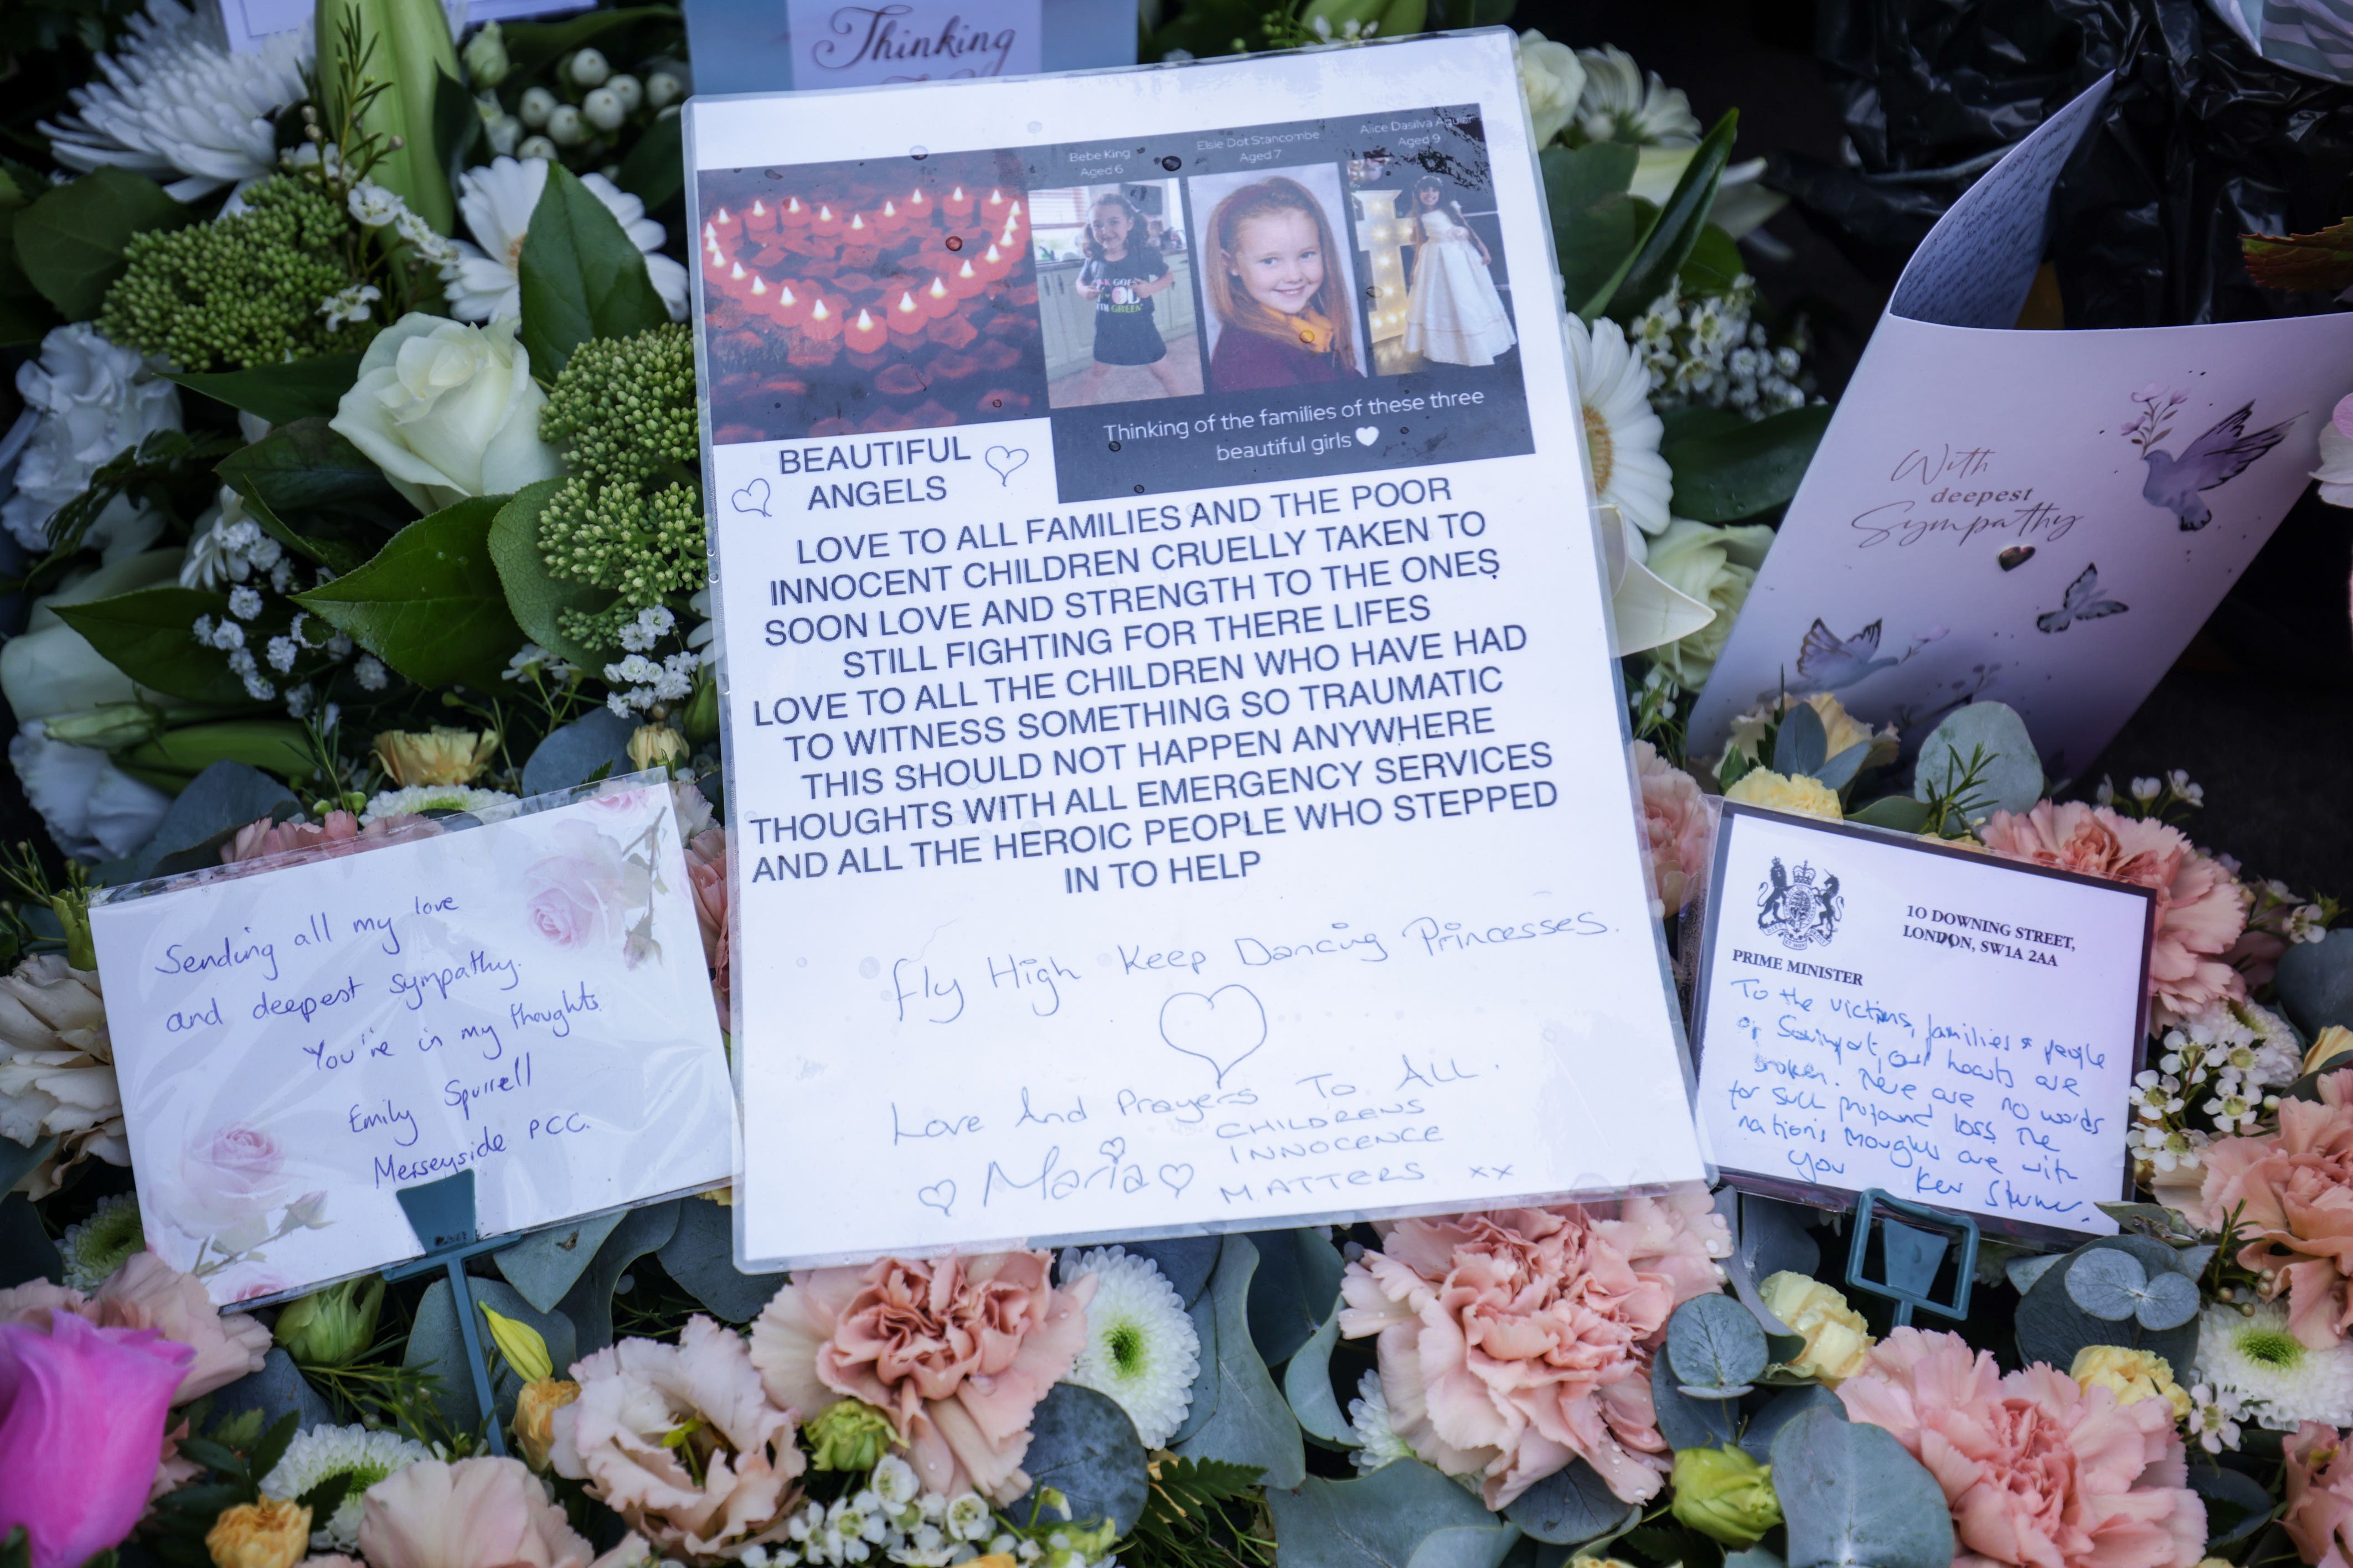 Thinking
Bebe King
Aged 6
Elsie Dot Stancombe
Aged 7
Alice Dasilva Aguiar
Aged 9
Thinking of the families of these three
beautiful girls
BEAUTIFUL
ANGELS
LOVE TO ALL FAMILIES AND THE POOR
INNOCENT CHILDREN CRUELLY TAKEN TO
SOON LOVE AND STRENGTH TO THE ONES
STILL FIGHTING FOR THERE LIFES
LOVE TO ALL THE CHILDREN WHO HAVE HAD
TO WITNESS SOMETHING SO TRAUMATIC
THIS SHOULD NOT HAPPEN ANYWHERE
THOUGHTS WITH ALL EMERGENCY SERVICES
AND ALL THE HEROIC PEOPLE WHO STEPPED
IN TO HELP
Fly High Keep Dancing Princesses.
Love And Prayers To ALL.
Maria
CHILDRENS
INNOCENCE
MATTERS xx
Sending all my love
and deepest sympathy.
You're in my thoughts.
Emily Spurrell
Merseyside PCC.
With
deepest
Sympathy
PRIME MINISTER
10 DOWNING STREET,
LONDON, SW1A 2AA
To the victims, families & people
of Southport, our hearts are
broken. There are no words
for such profound loss. The
nation's thoughts are with
you Keir Starmer.